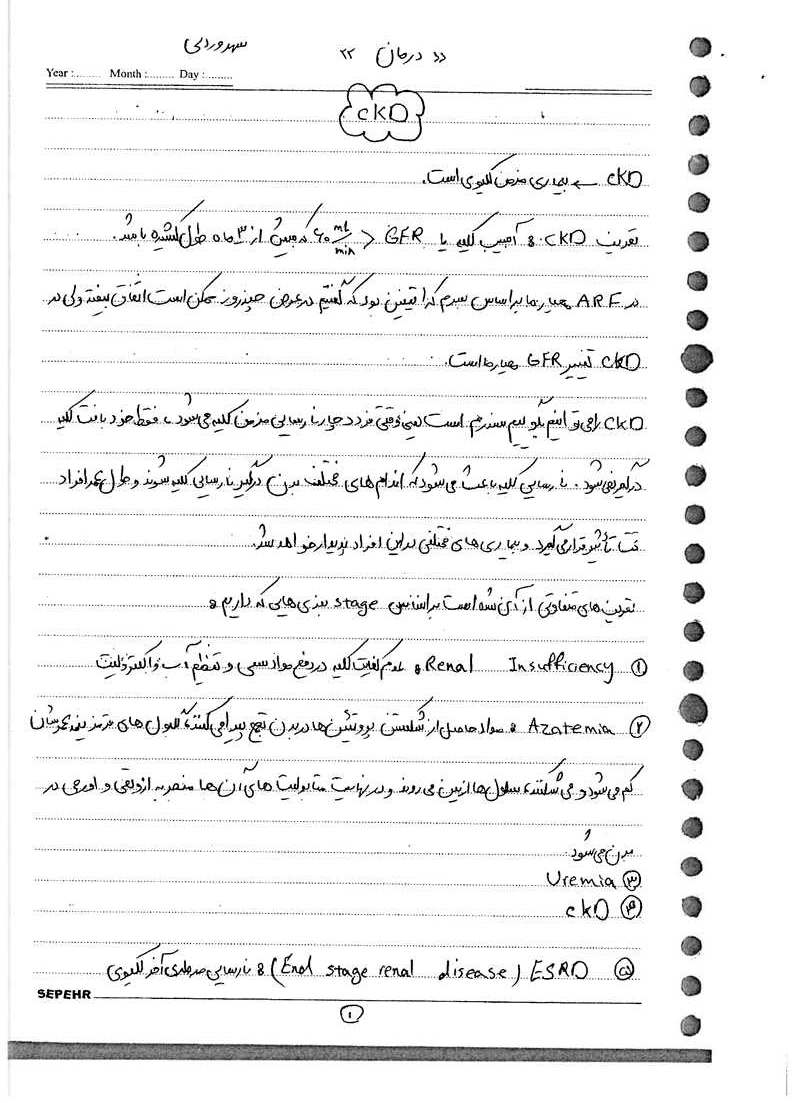 دارو درمان ۲۲ سهروردی
Year :........ Month :........ Day :........
CKD
CKD ← بیماری مزمن کلیوی است.
تعریف CKD: آسیب کلیه یا GFR < ۶۰ ml/min که بیش از ۳ ماه طول کشیده باشد.
در ARF معیار ما براساس سرم کراتینین بود که گفتیم در عرض چند روز ممکن است اتفاق بیفتد ولی در
CKD تغییر GFR معیار ما است.
CKD را می‌توانیم بگوییم سندرم است یعنی وقتی فرد دچار نارسایی مزمن کلیه می‌شود، فقط خود بافت کلیه
درگیر نمی‌شود. نارسایی کلیه باعث می‌شود که اندام‌های مختلف بدن درگیر نارسایی کلیه شوند و طول عمر افراد
تحت تأثیر قرار می‌گیرد و بیماری‌های مختلفی در این افراد پدیدار خواهد شد.
تعریف‌های متفاوتی از آن شده است براساس stage بندی‌هایی که داریم:
① Renal Insufficiency: عدم کفایت کلیه در دفع مواد سمی و تنظیم آب و الکترولیت
② Azatemia: مواد حاصل از شکستن پروتئین‌ها در بدن تجمع پیدا می‌کنند، گلبول‌های قرمز نیمه عمرشان
کم می‌شود و می‌شکنند، سلول‌ها از بین می‌روند و در نهایت متابولیت‌های آن‌ها منجر به ازوتمی و اورمی در
بدن می‌شود
③ Uremia
④ CKD
⑤ ESRD (End stage renal disease): نارسایی مرحله‌ی آخر کلیوی
SEPEHR
①